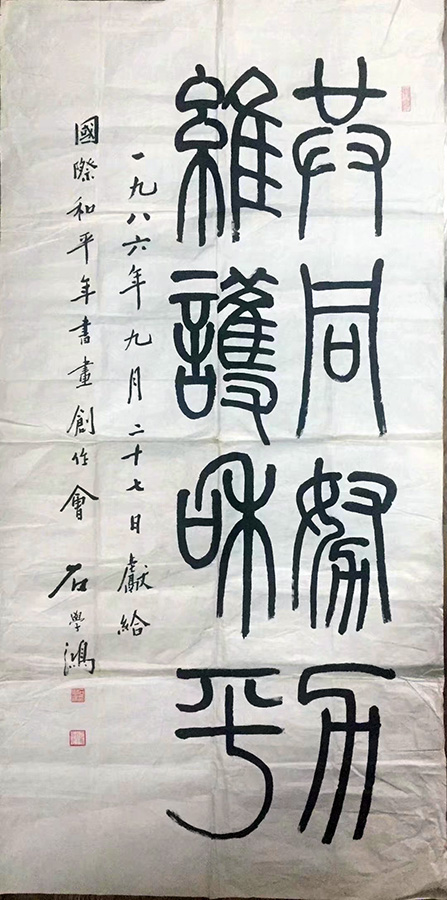 共同努力
維護和平
一九八六年九月二十七日獻給
國際和平年書畫創作會
石學鴻